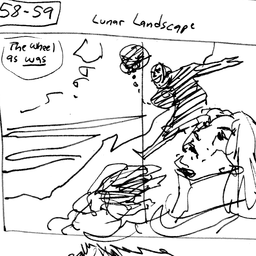 58-59
Lunar Landscape
The wheel
as was